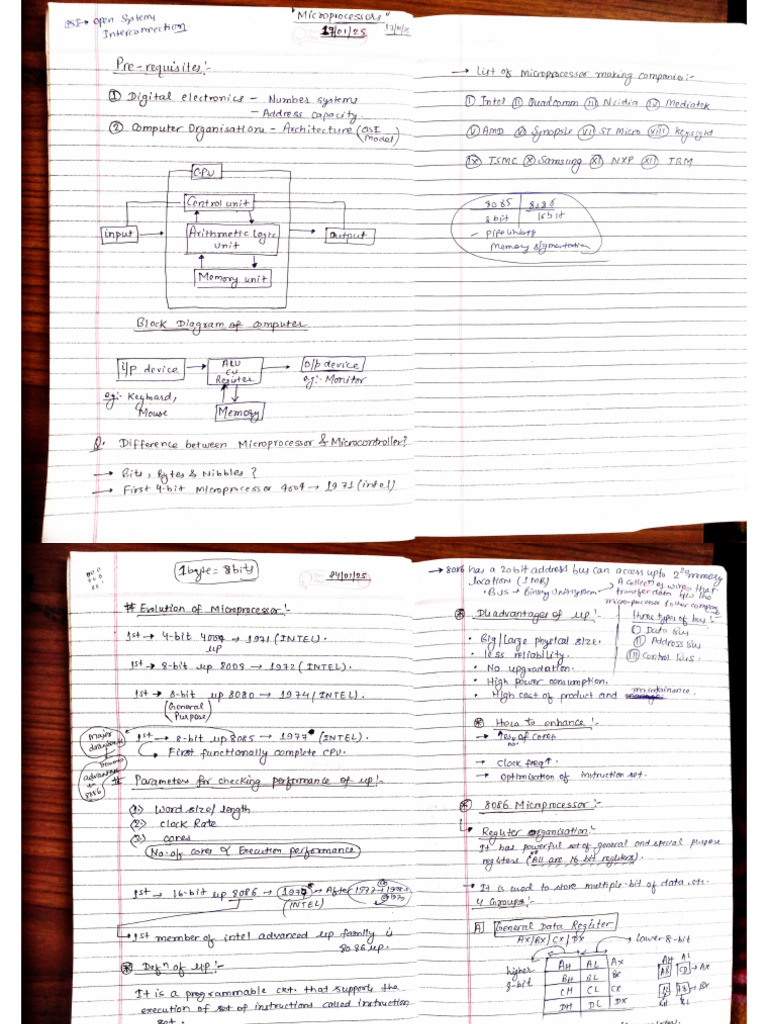 OSI → Open Systems
Interconnection
"Microprocessors"
17/01/25
17/01/25
Pre-requisites:-
① Digital electronics - Number systems
- Address capacity.
② Computer Organisation - Architecture (OSI Model)
CPU
Control unit
Input
Arithmetic logic
unit
Output
Memory unit
Block Diagram of computer
i/p device
ALU
CU
Register
O/p device
eg:- Monitor
eg:- Keyboard,
Mouse
Memory
Q. Difference between Microprocessor & Microcontroller?
→ Bits, Bytes & Nibbles?
→ First 4-bit Microprocessor 4004 → 1971 (intel)
→ List of Microprocessor making companies:-
Ⓘ Intel Ⓘⓘ Qualcomm Ⓘⓘⓘ Nvidia Ⓘⓥ Mediatek
Ⓥ AMD Ⓧ Synopsis ⓥⓘⓘ ST Micro ⓥⓘⓘⓘ Keysight
ⓘⓧ TSMC Ⓧ Samsung ⓧⓘ NXP ⓧⓘⓘ IBM
8085 | 8086
8bit | 16bit
- Pipelining
Memory segmentation
1 byte = 8 bits
24/01/25
# Evolution of Microprocessor:-
1st → 4-bit 4004 → 1971 (INTEL).
μp
1st → 8-bit μp 8008 → 1972 (INTEL).
1st → 8-bit μp 8080 → 1974 (INTEL).
(General
Purpose)
Major
drawbacks
1st → 8-bit μp 8085 → 1977 (INTEL).
First functionally complete CPU.
advances
in
8086
# Parameters for checking performance of μp:-
① Word size/length
② Clock Rate
③ cores
No. of cores ∝ Execution performance
1st → 16-bit μp 8086 → 1977 → After 1977 → 1978
(INTEL)
1st member of intel advanced μp family is
8086 μp.
* Defⁿ of μp:-
It is a programmable ckt. that supports the
execution of set of instructions called instruction
set.
→ 8086 has a 20 bit address bus can access upto 2²⁰ memory
location (1 MB)
• Bus → Binary Unit System → A collection of wires that
transfer data b/w the
Three types of bus:-
① Data Bus
② Address Bus
③ Control Bus.
* Disadvantages of μp:-
• Big/Large physical size.
• less reliability.
• No upgradation.
• High power consumption.
• High cost of product and maintainance
* How to enhance:-
→ ↑es no. of cores
→ Clock freqⁿ.
→ Optimisation of instruction set.
* 8086 Microprocessor:-
Register organisation:-
It has powerful set of general and special purpose
registers (All are 16-bit registers).
→ It is used to store multiple-bit of data, etc.
4 Groups:-
A General Data Register
AX/BX/CX/DX
Lower 8-bit
higher
8-bit
AH AL AX
BH BL BX
CH CL CX
DH DL DX
AH AL
→ AX